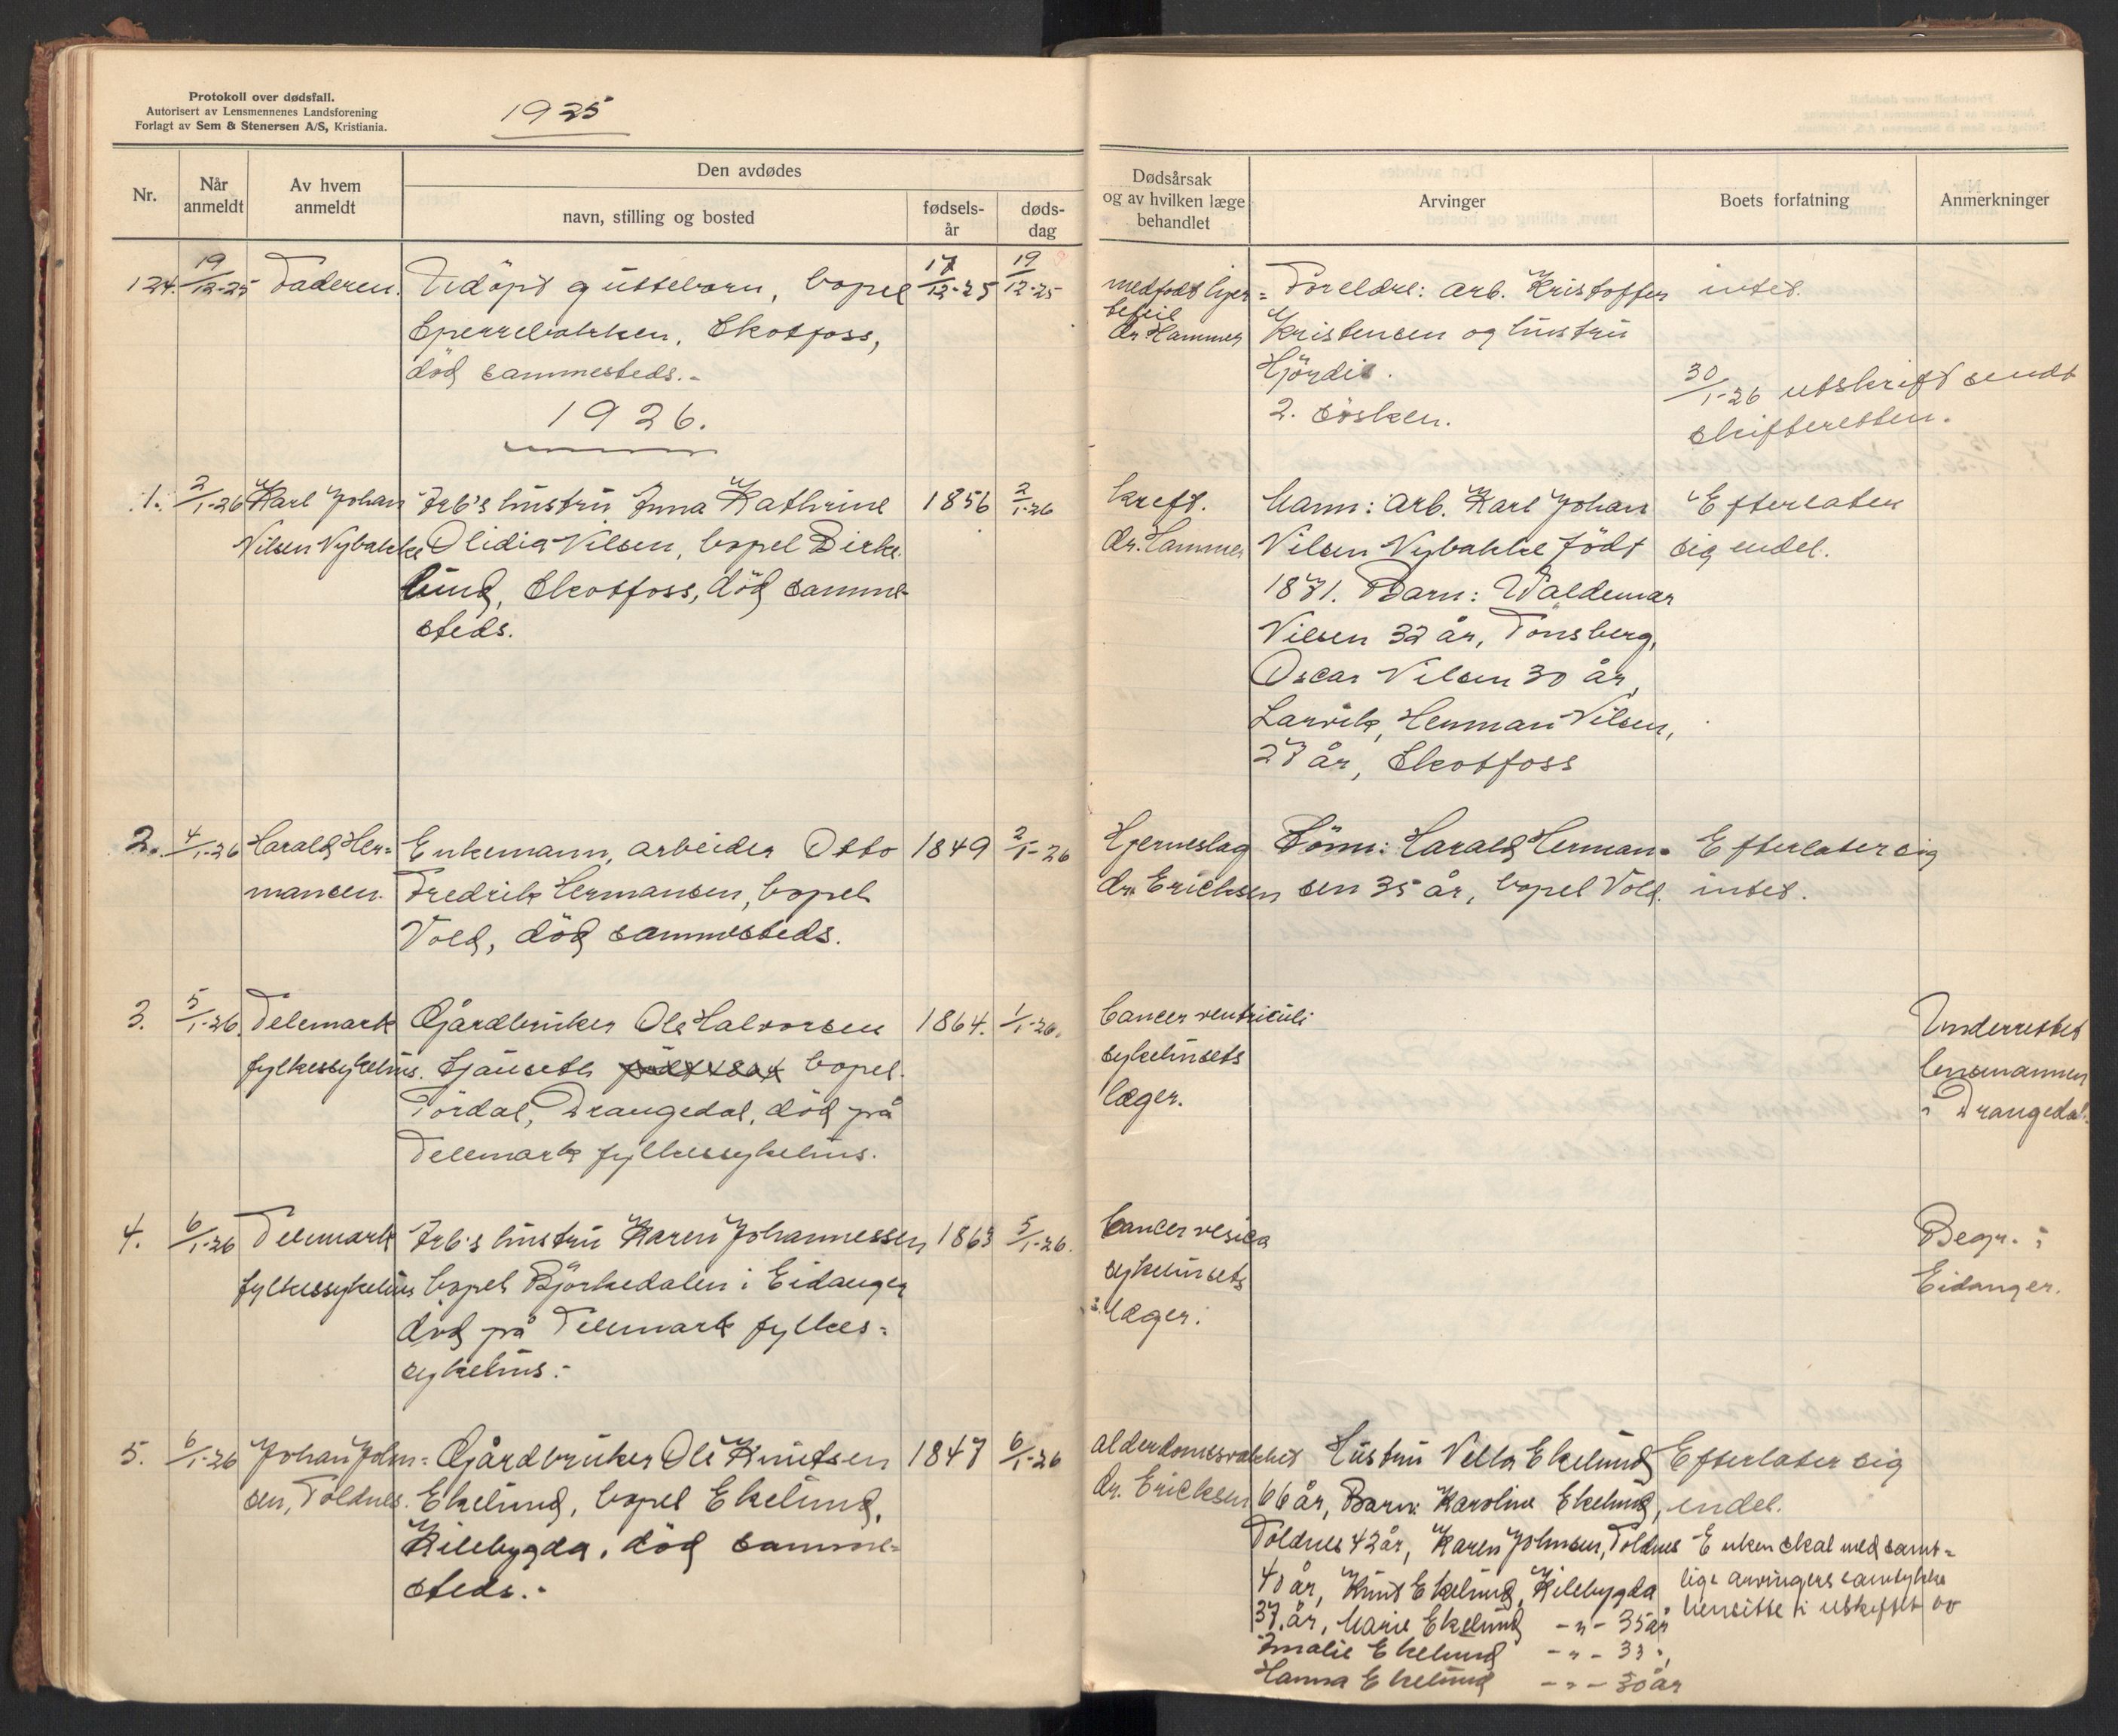 Protokoll over dødsfall.
Autorisert av Lensmennenes Landsforening
Forlagt av Sem & Stenersen A/S, Kristiania.
1925
Nr.
Når anmeldt
Av hvem anmeldt
Den avdødes
navn, stilling og bosted
fødsels-år
døds-dag
Dødsårsak
og av hvilken læge
behandlet
Arvinger
Boets forfatning
Anmerkninger
124. 19/12-25 Faderen. Udöpt guttebarn, bopel 17/12-25 19/12-25
Sperrebakken, Skotfoss,
död sammesteds.-
medfödt hjer-
tefeil
dr. Hammer
Foreldre: arb. Kristoffer
Kristensen og hustru
Hjördis.
2. sösken.
intet.
30/1-26 utskrift sendt
skifteretten.
1926.
1. 2/1-26 Karl Johan Arb's hustru Anna Kathrine 1856 2/1-26
Nilsen Nybakke Olidia Nilsen, bopel Birke-
lund, Skotfoss, död samme-
steds.
kreft.
dr. Hammer
Mann: arb. Karl Johan
Nilsen Nybakke födt
1871. Barn: Waldemar
Nilsen 32 år, Tönsberg,
Oscar Nilsen 30 år,
Larvik, Herman Nilsen,
27 år, Skotfoss
Efterlater
sig endel.
2. 4/1-26 Harald Her- Enkemann, arbeider Otto 1849 2/1-26
mansen. Fredrik Hermansen, bopel
Vold, död sammesteds.
Hjerneslag
dr. Erichsen
Sönn: Harald Herman-
sen 35 år, bopel Vold.
Efterlater sig
intet.
3. 5/1-26. Telemark Gårdbruker Ole Halvorsen 1864. 1/1-26.
fylkessykehus. Gjauseth bopel
Tördal, Drangedal, död på
Telemark fylkessykehus.
Cancer ventriculi
sykehusets
læger.
Underrettet
lensmannen
i Drangedal.
4. 6/1-26 Telemark Arb's hustru Karen Johannessen 1863 5/1-26.
fylkessykehus bopel Björkedalen i Eidanger
död på Telemark fylkes-
sykehus.-
Cancer vesica
sykehusets
læger.
Begr. i
Eidanger.
5. 6/1-26 Johan John- Gårdbruker Ole Knutsen 1847 6/1-26
sen, Toldnes. Ekelund, bopel Ekelund,
Kilebygda, död samme-
steds.-
alderdomssvakhet
dr. Ericksen
Hustru Vella Ekelund
66 år, Barn: Karoline Ekelund,
Toldnes 42 år, Karen Johnsen, Toldnes
40 år, Knut Ekelund, Kilebygda
37 år, Marie Ekelund -"- 35 år
Amalie Ekelund -"- 33 "
Hanna Ekelund -"- 30 år
Efterlater sig
endel.
Enken skal med samt-
lige arvingers samtykke
hensitte i uskiftet bo